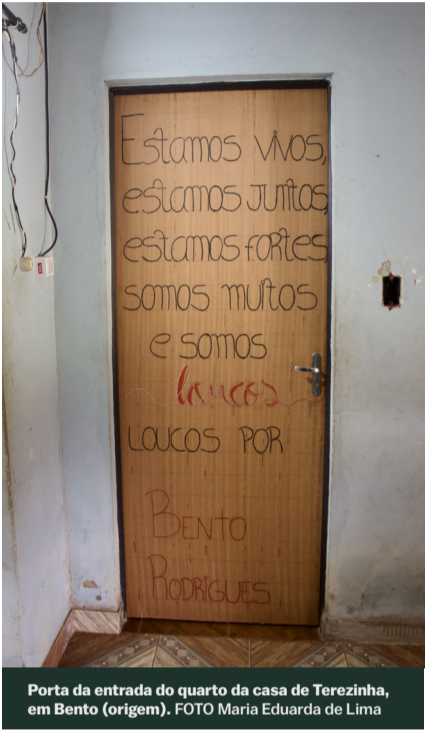 Estamos vivos,
estamos juntos,
estamos fortes,
somos muitos
e somos
loucos
LOUCOS POR
BENTO
RODRIGUES
Porta da entrada do quarto da casa de Terezinha,
em Bento (origem). FOTO Maria Eduarda de Lima